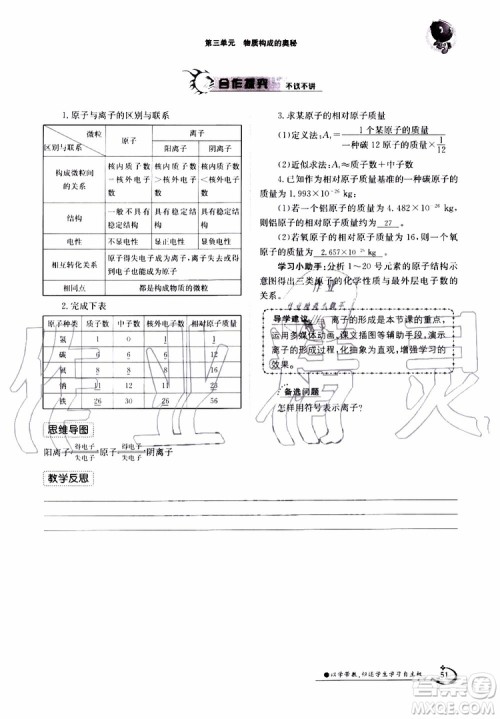 第三单元 物质构成的奥秘
合作探究 不议不讲
1.原子与离子的区别与联系
微粒 原子 离子
区别与联系 阳离子 阴离子
构成微粒间的关系 核内质子数=核外电子数 核内质子数>核外电子数 核内质子数<核外电子数
结构 一般不是稳定结构 稳定结构 稳定结构
电性 不显电性 显正电性 显负电性
相互转化关系 阳离子得电子,阴离子失去电子或得到电子
相同点 都是构成物质的微粒
2.完成下表
原子种类 质子数 中子数 核外电子数 相对原子质量
氢 1 0 1 1
碳 6 6
氧 8
钠 11
铁 26 30 26 56
思维导图
阳离子 得电子 失电子 原子 得电子 失电子 阴离子
教学反思
3.求某原子的相对原子质量
(1)定义法:Aᵣ=1个某原子的实际质量/一种碳12原子质量×1/12
(2)近似法:Aᵣ≈质子数+中子数
4.已知作为相对原子质量基准的一种碳原子的
质量为1.993×10⁻²⁶ kg:
(1)若一个铝原子的质量为4.482×10⁻²⁶ kg,
则铝原子的相对原子质量约为 27 。
(2)若氧原子的相对原子质量为16,则一个氧原
子的质量约为 2.657×10⁻²⁶ kg 。
学习小助手:分析1~20号元素的原子结构示
意图得出三类原子的化学性质与最外层电子数的
关系。
导学建议 离子的形成是本节课的重点,
运用多媒体动画、图片等辅助手段,演
示离子的形成过程,化抽象为直观,增强学习的
效果。
备选问题
怎样用符号表示离子?
以学带教,归还学生学习自主权
51